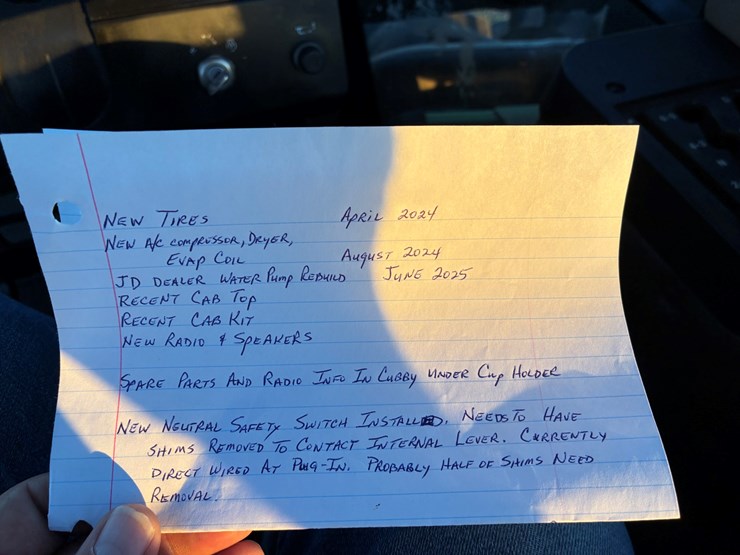 NEW TIRES APRIL 2024
NEW A/C COMPRESSOR, DRYER,
EVAP COIL AUGUST 2024
JD DEALER WATER PUMP REBUILD JUNE 2025
RECENT CAB TOP
RECENT CAB KIT
NEW RADIO & SPEAKERS
SPARE PARTS AND RADIO INFO IN CUBBY UNDER CUP HOLDER
NEW NEUTRAL SAFETY SWITCH INSTALLED. NEEDS TO HAVE
SHIMS REMOVED TO CONTACT INTERNAL LEVER. CURRENTLY
DIRECT WIRED AT PLUG-IN. PROBABLY HALF OF SHIMS NEED
REMOVAL.